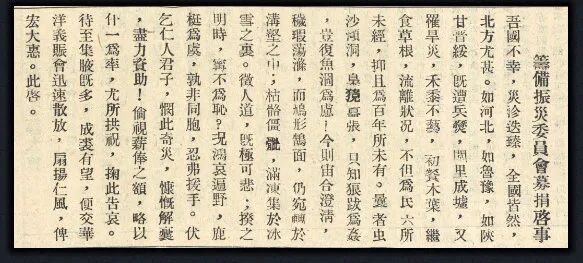 籌備振災委員會募捐啓事
吾國不幸,災沴迭臻,全國皆然,
北方尤甚。如河北,如魯豫,如陝
甘晉綏,旣遭兵燹,閭里成墟,又
罹旱災,禾黍不藝,初餐木葉,繼
食草根,流離狀況,不但爲民六所
未經,抑且爲百年所未有。曩者虫
沙澒洞,梟獍鴟張,只知狼跋爲姦
,豈復魚涸爲慮!今則宙合澄清,
穢瑕蕩滌,而鳩形鵠面,仍宛轉於
溝壑之中;枯骼僵,滿凍集於冰
雪之裏。徵人道,旣極可悲;揆之
明時,寗不爲恥?况鴻哀遍野,鹿
梃爲虞,孰非同胞,忍弗援手。伏
乞仁人君子,憫此奇災,慷慨解囊
,盡力資助!倘視薪俸之額,略以
什一爲率,尤所拱祝,掬此告哀。
待至集腋旣多,成裘有望,便交華
洋義賑會迅速散放,扇揚仁風,俾
宏大惠。此啓。